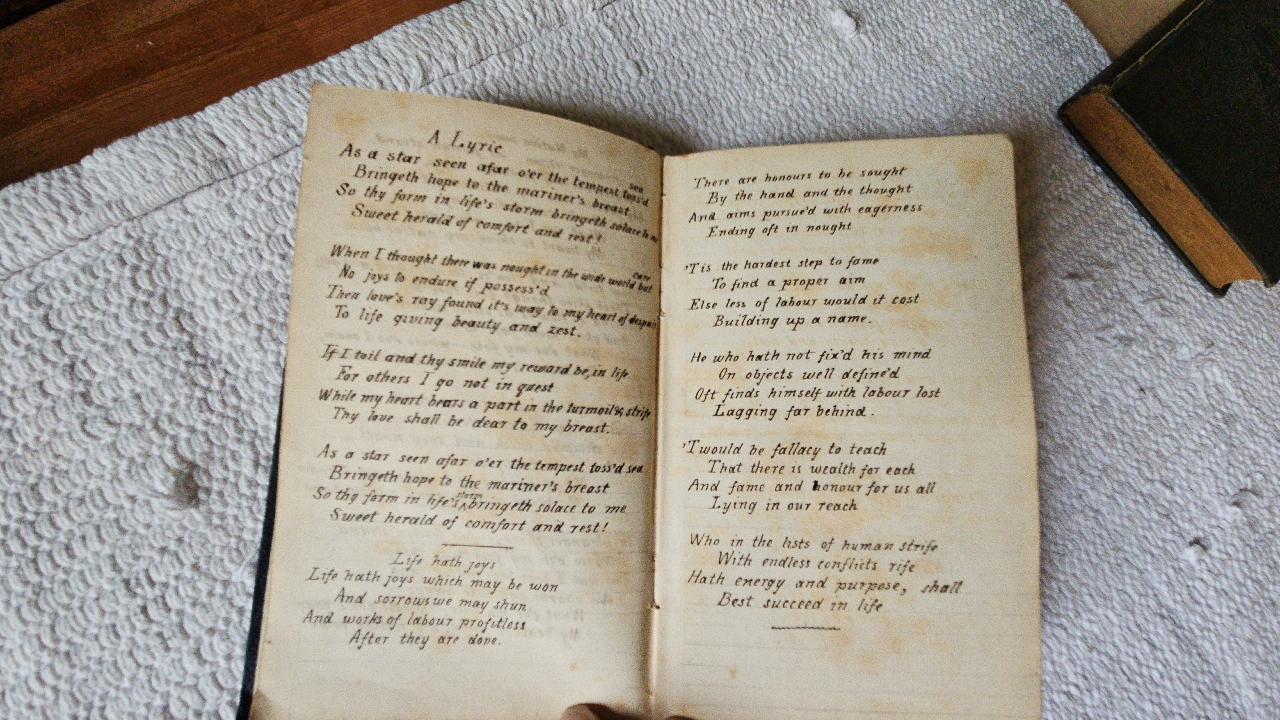 A Lyric
As a star seen afar o'er the tempest toss'd sea
Bringeth hope to the mariner's breast
So thy form in life's storm bringeth solace to me
Sweet herald of comfort and rest!
When I thought there was nought in the wide world but care
No joys to endure if possess'd
Then love's ray found it's way to my heart of despair
To life giving beauty and zest.
If I toil and thy smile my reward be, in life
For others I go not in quest
While my heart bears a part in the turmoil & strife
Thy love shall be dear to my breast.
As a star seen afar o'er the tempest toss'd sea
Bringeth hope to the mariner's breast
So thy form in life's storm bringeth solace to me
Sweet herald of comfort and rest!
Life hath joys
Life hath joys which may be won
And sorrows we may shun
And works of labour profitless
After they are done.
There are honours to be sought
By the hand and the thought
And aims pursue'd with eagerness
Ending oft in nought
'Tis the hardest step to fame
To find a proper aim
Else less of labour would it cost
Building up a name.
He who hath not fix'd his mind
On objects well define'd
Oft finds himself with labour lost
Lagging far behind.
'Twould be fallacy to teach
That there is wealth for each
And fame and honour for us all
Lying in our reach
Who in the lists of human strife
With endless conflicts rife
Hath energy and purpose, shall
Best succeed in life